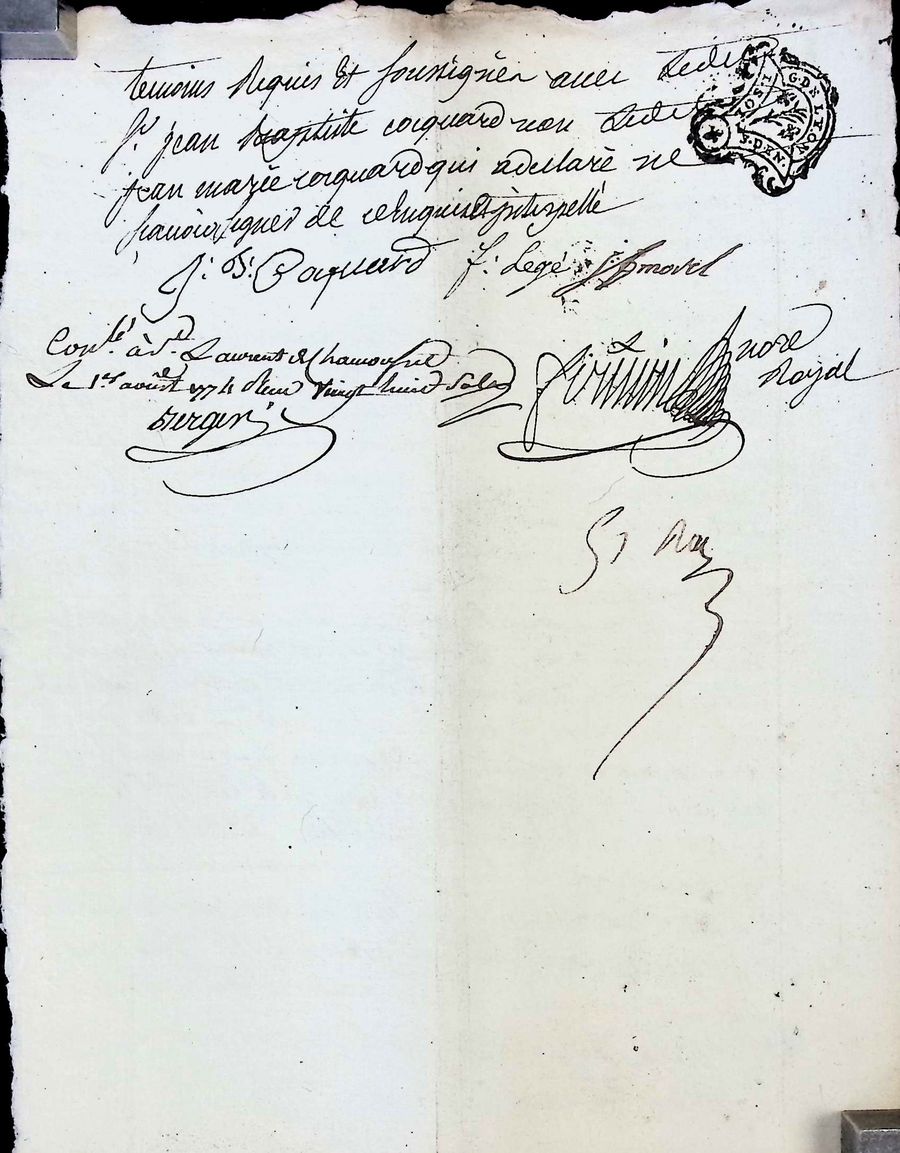 temoins Requis Et soussignés avec Ledit
Sr. jean Baptiste coquard non Ledit
jean marie coquard qui a declaré ne
scavoir signer de ce Enquis et interpellé
J. B. Coquard f. Legé
Conlé. à St. Laurent de Chamousset
Le 1er aoust 1774 Reçu Vingt huit Sols
Berger
notre
Royal
G. DE LYON
3. DEN.